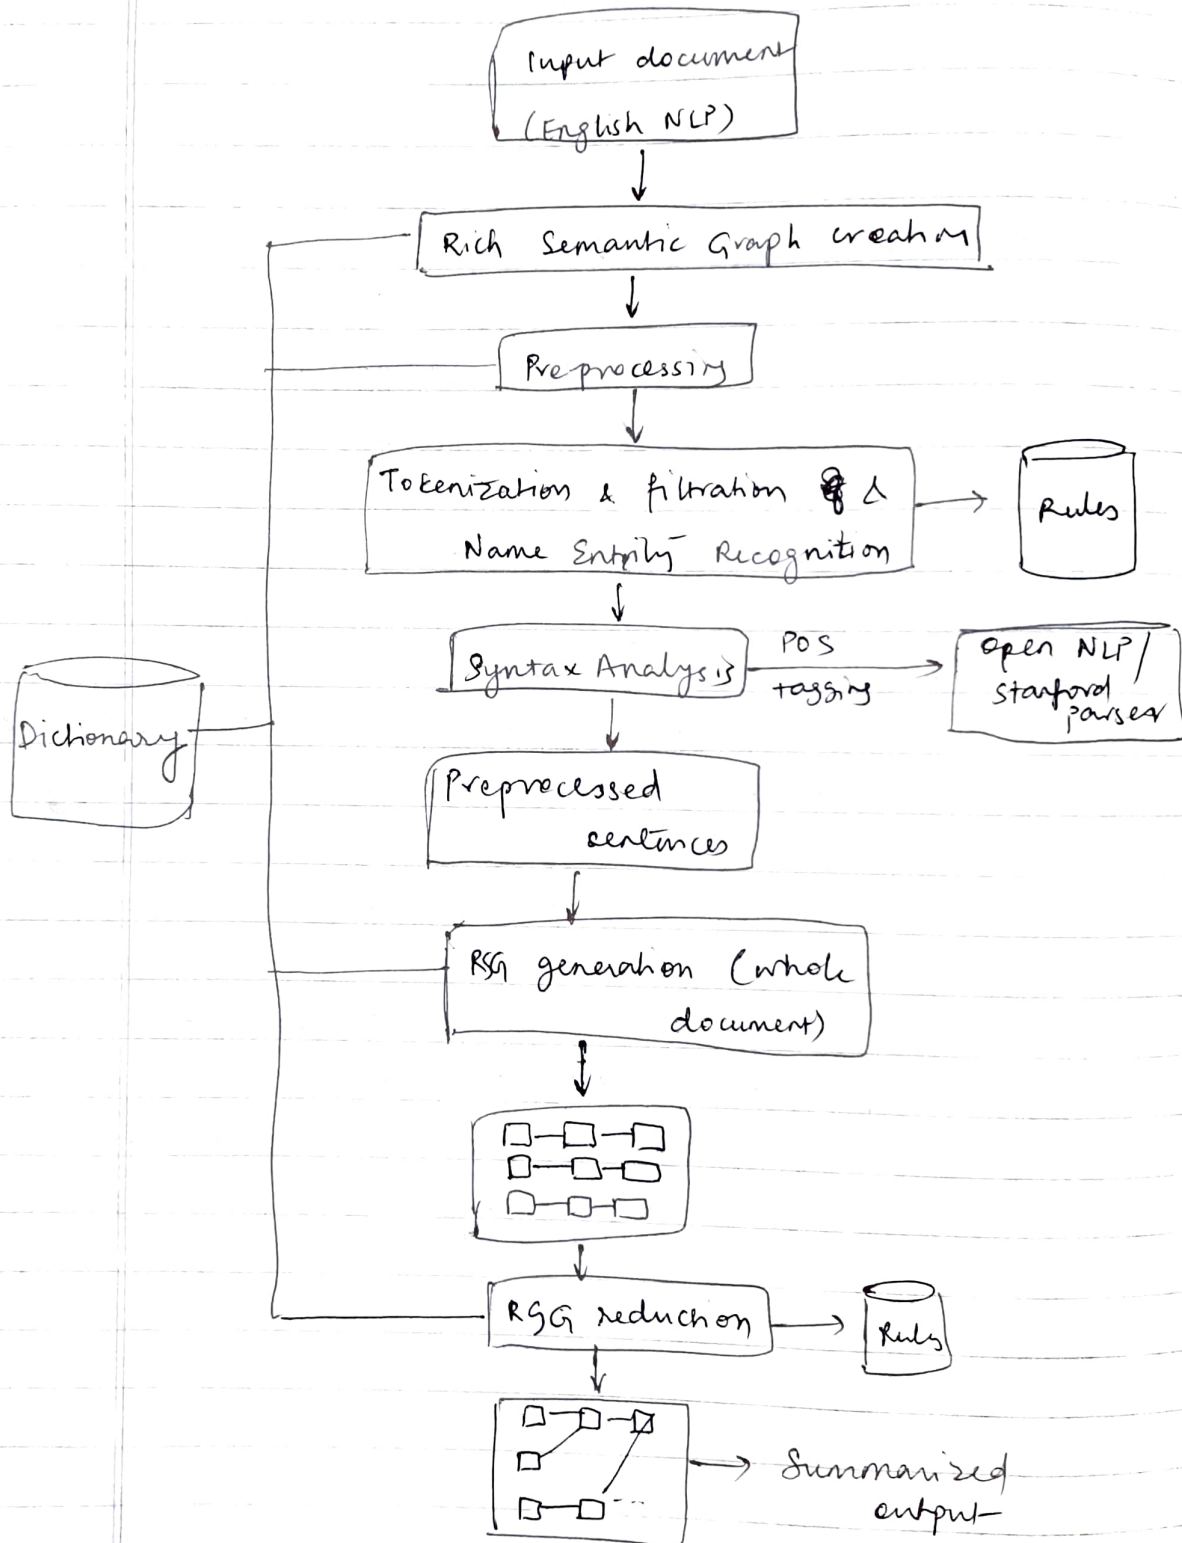 Input document
(English NLP)
Rich Semantic Graph creation
Preprocessing
Tokenization & filtration &
Name Entity Recognition
Rules
Syntax Analysis
POS
tagging
Open NLP/
Stanford
parser
Dictionary
Preprocessed
sentences
RSG generation (whole
document)
RSG reduction
Rules
Summarized
output